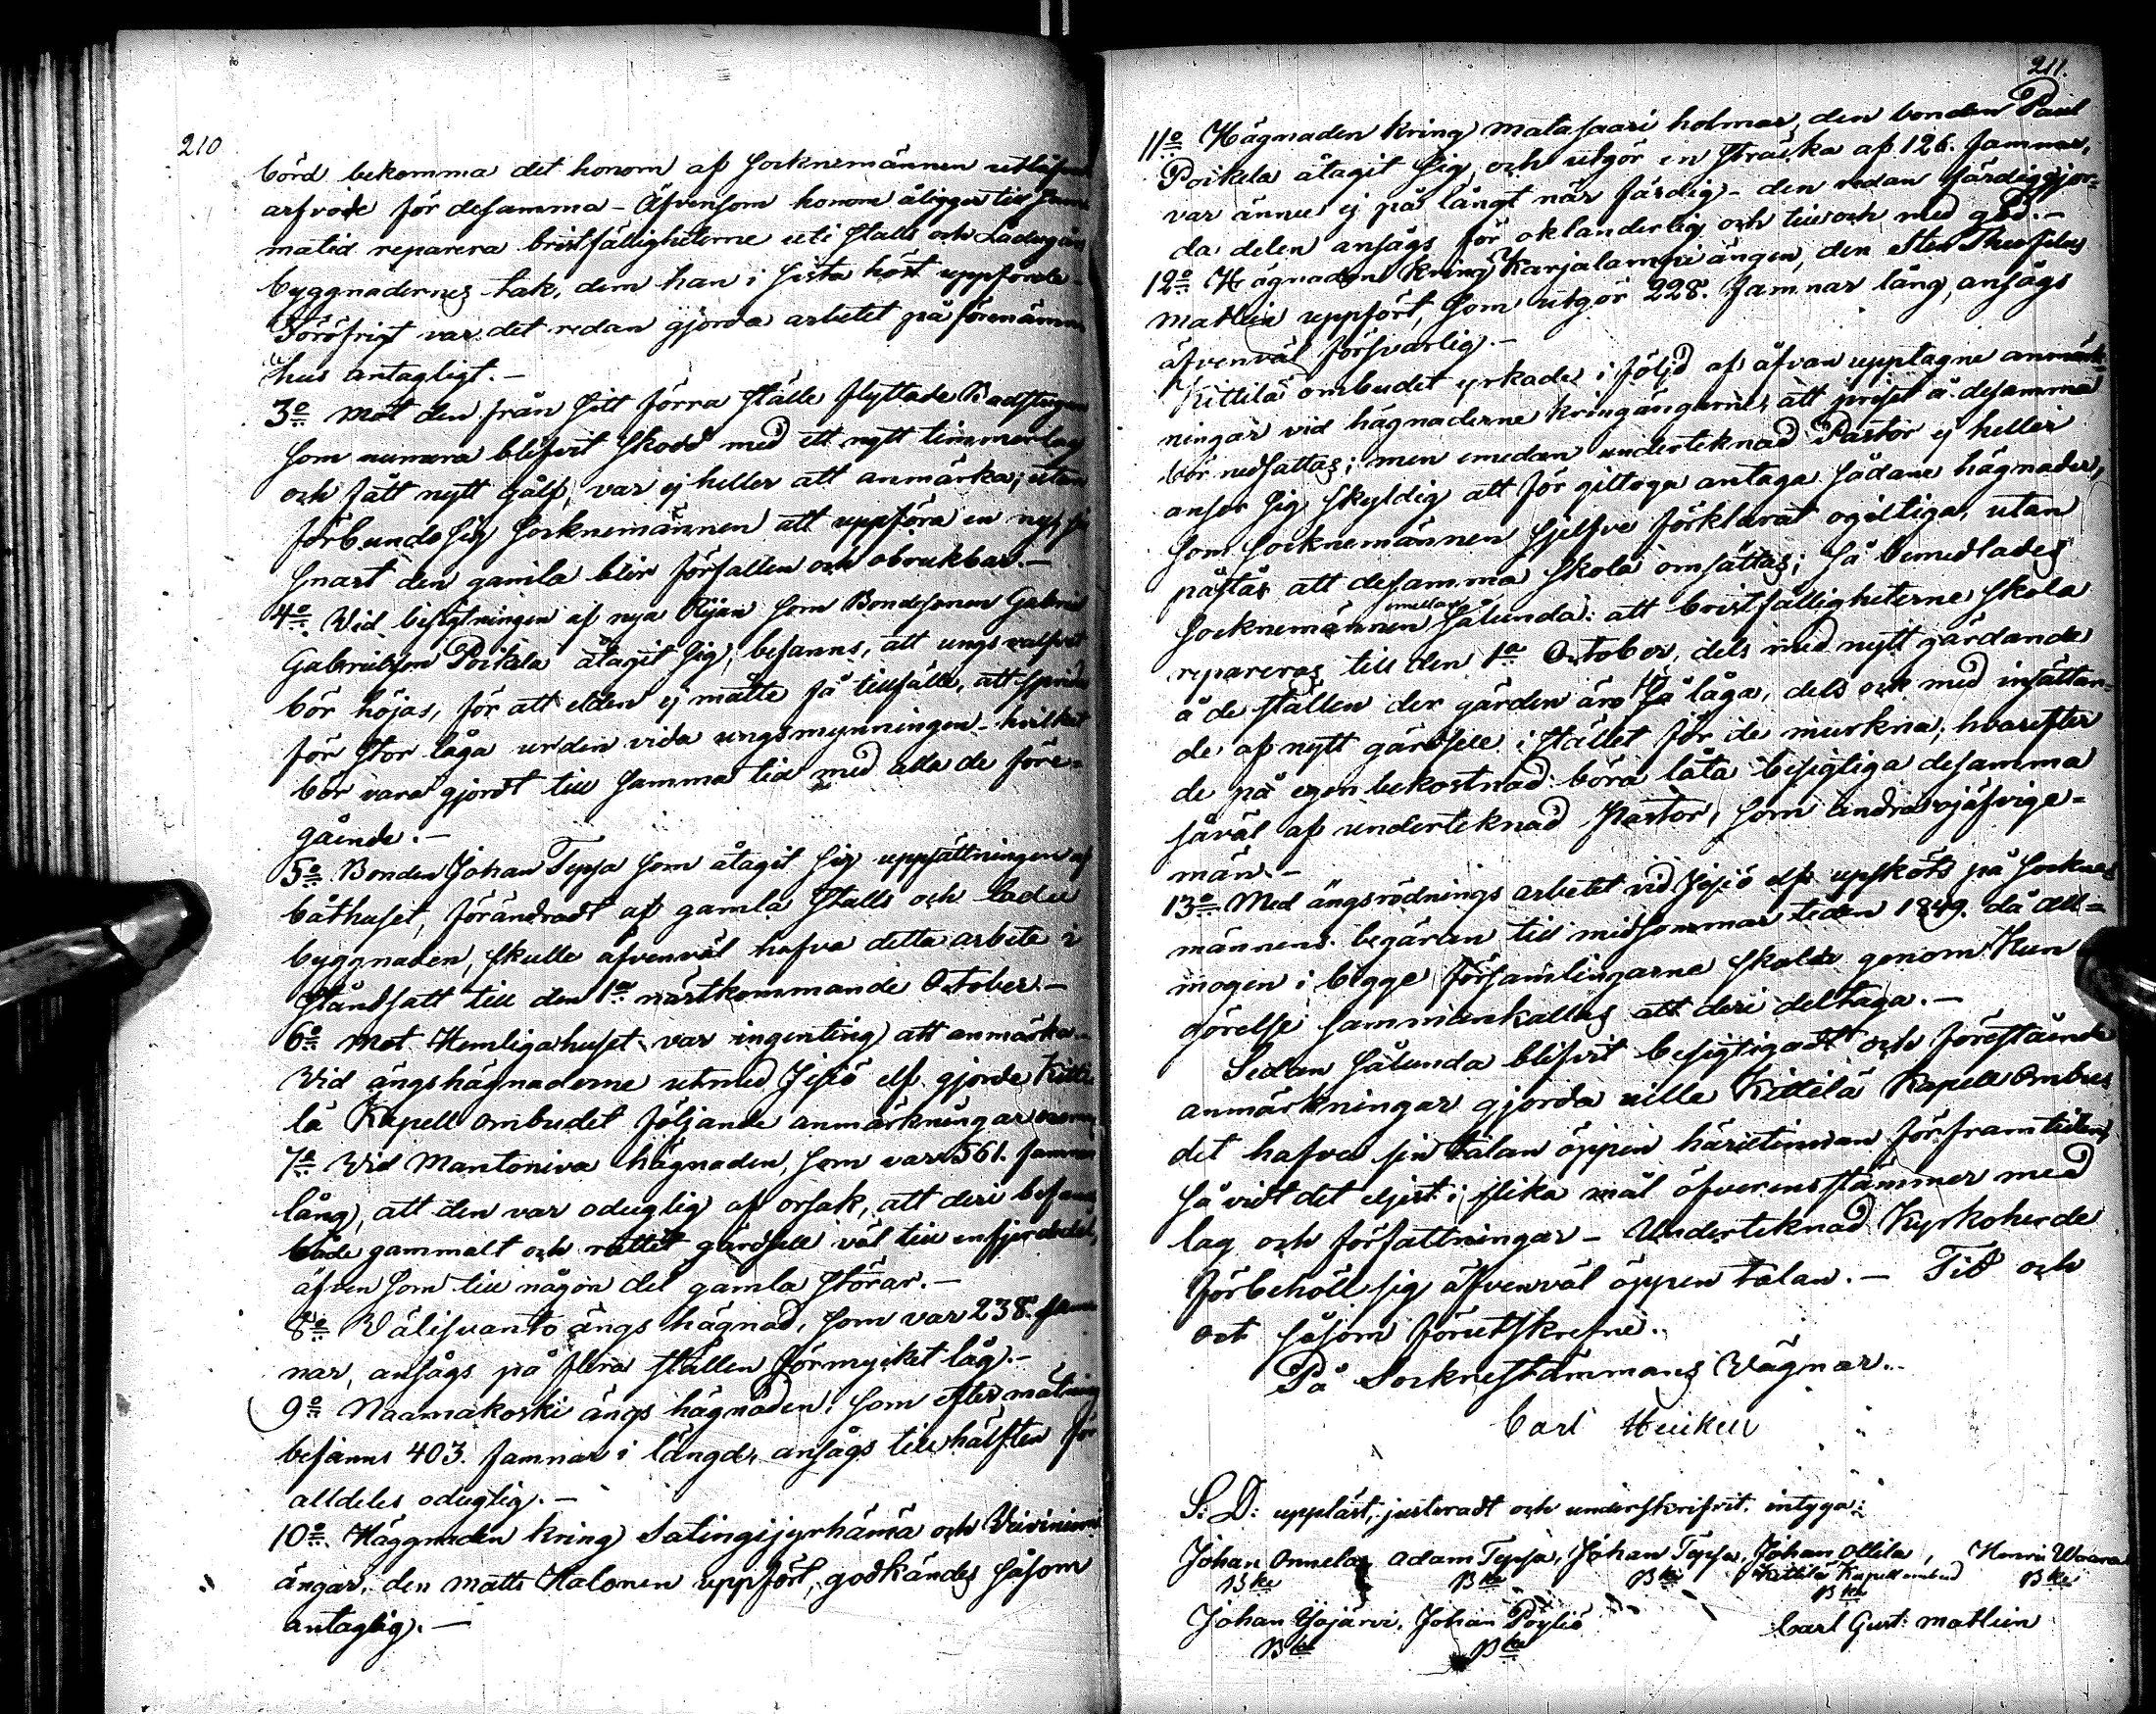 210
börd bekomma det honom af Socknemännen utläfs
arfvode för desamma – Äfvensom honom åligger till samma
matid reparera bristfälligheterne uti Stalls och Ladugårds
byggnadernes tak, dem han i sista höst uppförde –
Föröfrigt var det redan gjorda arbetet på förenämnd
hus antagligt. –
3o Mot den från sitt förra ställe flyttade Badstugan
som numera blifvit skodd med ett nytt timmerlag
och fått nytt gålf, var ej heller att anmärka; utan
förbundo sig Socknemännen att uppföra en ny, så
snart den gamla blir förfallen och obrukbar. –
4o Vid besigtningen af nya Rijan som Bondesonen Gabriel
Gabrielsson Poikela åtagit sig, befanns, att ungs valfvet
bör höjas, för att elden ej måtte få tillfälle, att sprida
för stor låga ur den vida ungsmynningen – hvilket
bör vara gjordt till samma tid med alla de före-
gående. –
5o Bonden Johan Tepsa som åtagit sig uppsättningen af
båthuset, förändradt af gamla Stalls och ladu
byggnaden, skulle äfvenväl hafva detta arbete i
ståndsatt till den 1a nästkommande October –
6o Mot Hemligahuset var ingenting att anmärka –
Vid ängshägnaderne utmed Jesiö elf gjorde Kitti-
lä Kapell ombudet följande anmärkningar
7o Vid Mantoniva hägnaden, som var 561. famnar
lång, att den var oduglig af orsak, att deri befanns
både gammalt och ruttet gärdsell väl till en fjerdedel,
äfven som till någon del gamla störar. –
8o Välisvanto ängs hägnad, som var 238. fam-
nar, ansågs på flera ställen förmycket låg. –
9o Naamakoski ängs hägnaden, som efter mätning
befanns 403. famnar i längd, ansågs till hälften för
alldeles oduglig. –
10o Häggnaden kring Satingijyrhämä och
ängar, den Matts Halonen uppfört, godkändes såsom
antaglig. –
211.
11o Hägnaden kring Matasaari holmar, den bonden Paul
Poikela åtagit sig, och utgör en sträcka af 126. famnar,
var ännu ej på långt när färdig – den redan färdiggjor-
da delen ansågs för oklanderlig och till och med god. –
12o Hägnaden kring Karjalampi ängen, den Sten Theofilus
Mathlin uppfört, som utgör 228. famnar lång, ansågs
äfvenväl försvarlig. –
Kittilä ombudet yrkade i följd af åfvan upptagne anmärk-
ningar vid hägnaderne kring ängarne, att priset å desamma
bör nedsättas; men emedan underteknad Pastor ej heller
anser sig skyldig att för giltoga antaga sådane hägnader,
som Socknemännen sjelfve förklarat ogiltiga, utan
påstår att desamma skola omsättas; så bemedlades
emellan
Socknemännen sålunda: att bristfälligheterne skola
repareras till den 1a October, dels med nytt gärdande
å de ställen der gärden äro så låga, dels och med insättan-
de af nytt gärdsell i stället för de murkna; hvarefter
de på egen bekostnad böra låta besigtiga desamma
såväl af underteknad Pastor, som andra ojäfvige-
män. –
13o Med ängsrödnings arbetet vid Jesiö elf upsköts på Sockne-
männens begäran till midsommar tiden 1849. då all-
mogen i bägge församlingarne skulle genom Kun
görelse sammankallas att deri deltaga. –
Sedan sålunda blifvit besigtigadt och förestående
anmärkningar gjorda ville Kittilä Kapell ombu-
det hafva sin talan öppen häruti innan för framtiden,
så vidt det eljest i slika mål öfverensstämmer med
lag och författningar – Underteknad Kyrkoherde
förbehöll sig äfvenväl öppen talan. – Tid och
ort såsom förutskrefne.
På Socknestämmans Vägnar.
Carl Heickell
S: D: uppläst, justeradt och underskrifvit, intyga:
Johan Onnela, Adam Tepsa, Johan Tepsa, Johan Ollila, Henric Waara
Bke Bke Bke Kittilä Kapell ombud Bke
Bke
Johan Yjäjärvi, Johan Pöyliö Carl Gust: Mathlin
Bke Bke